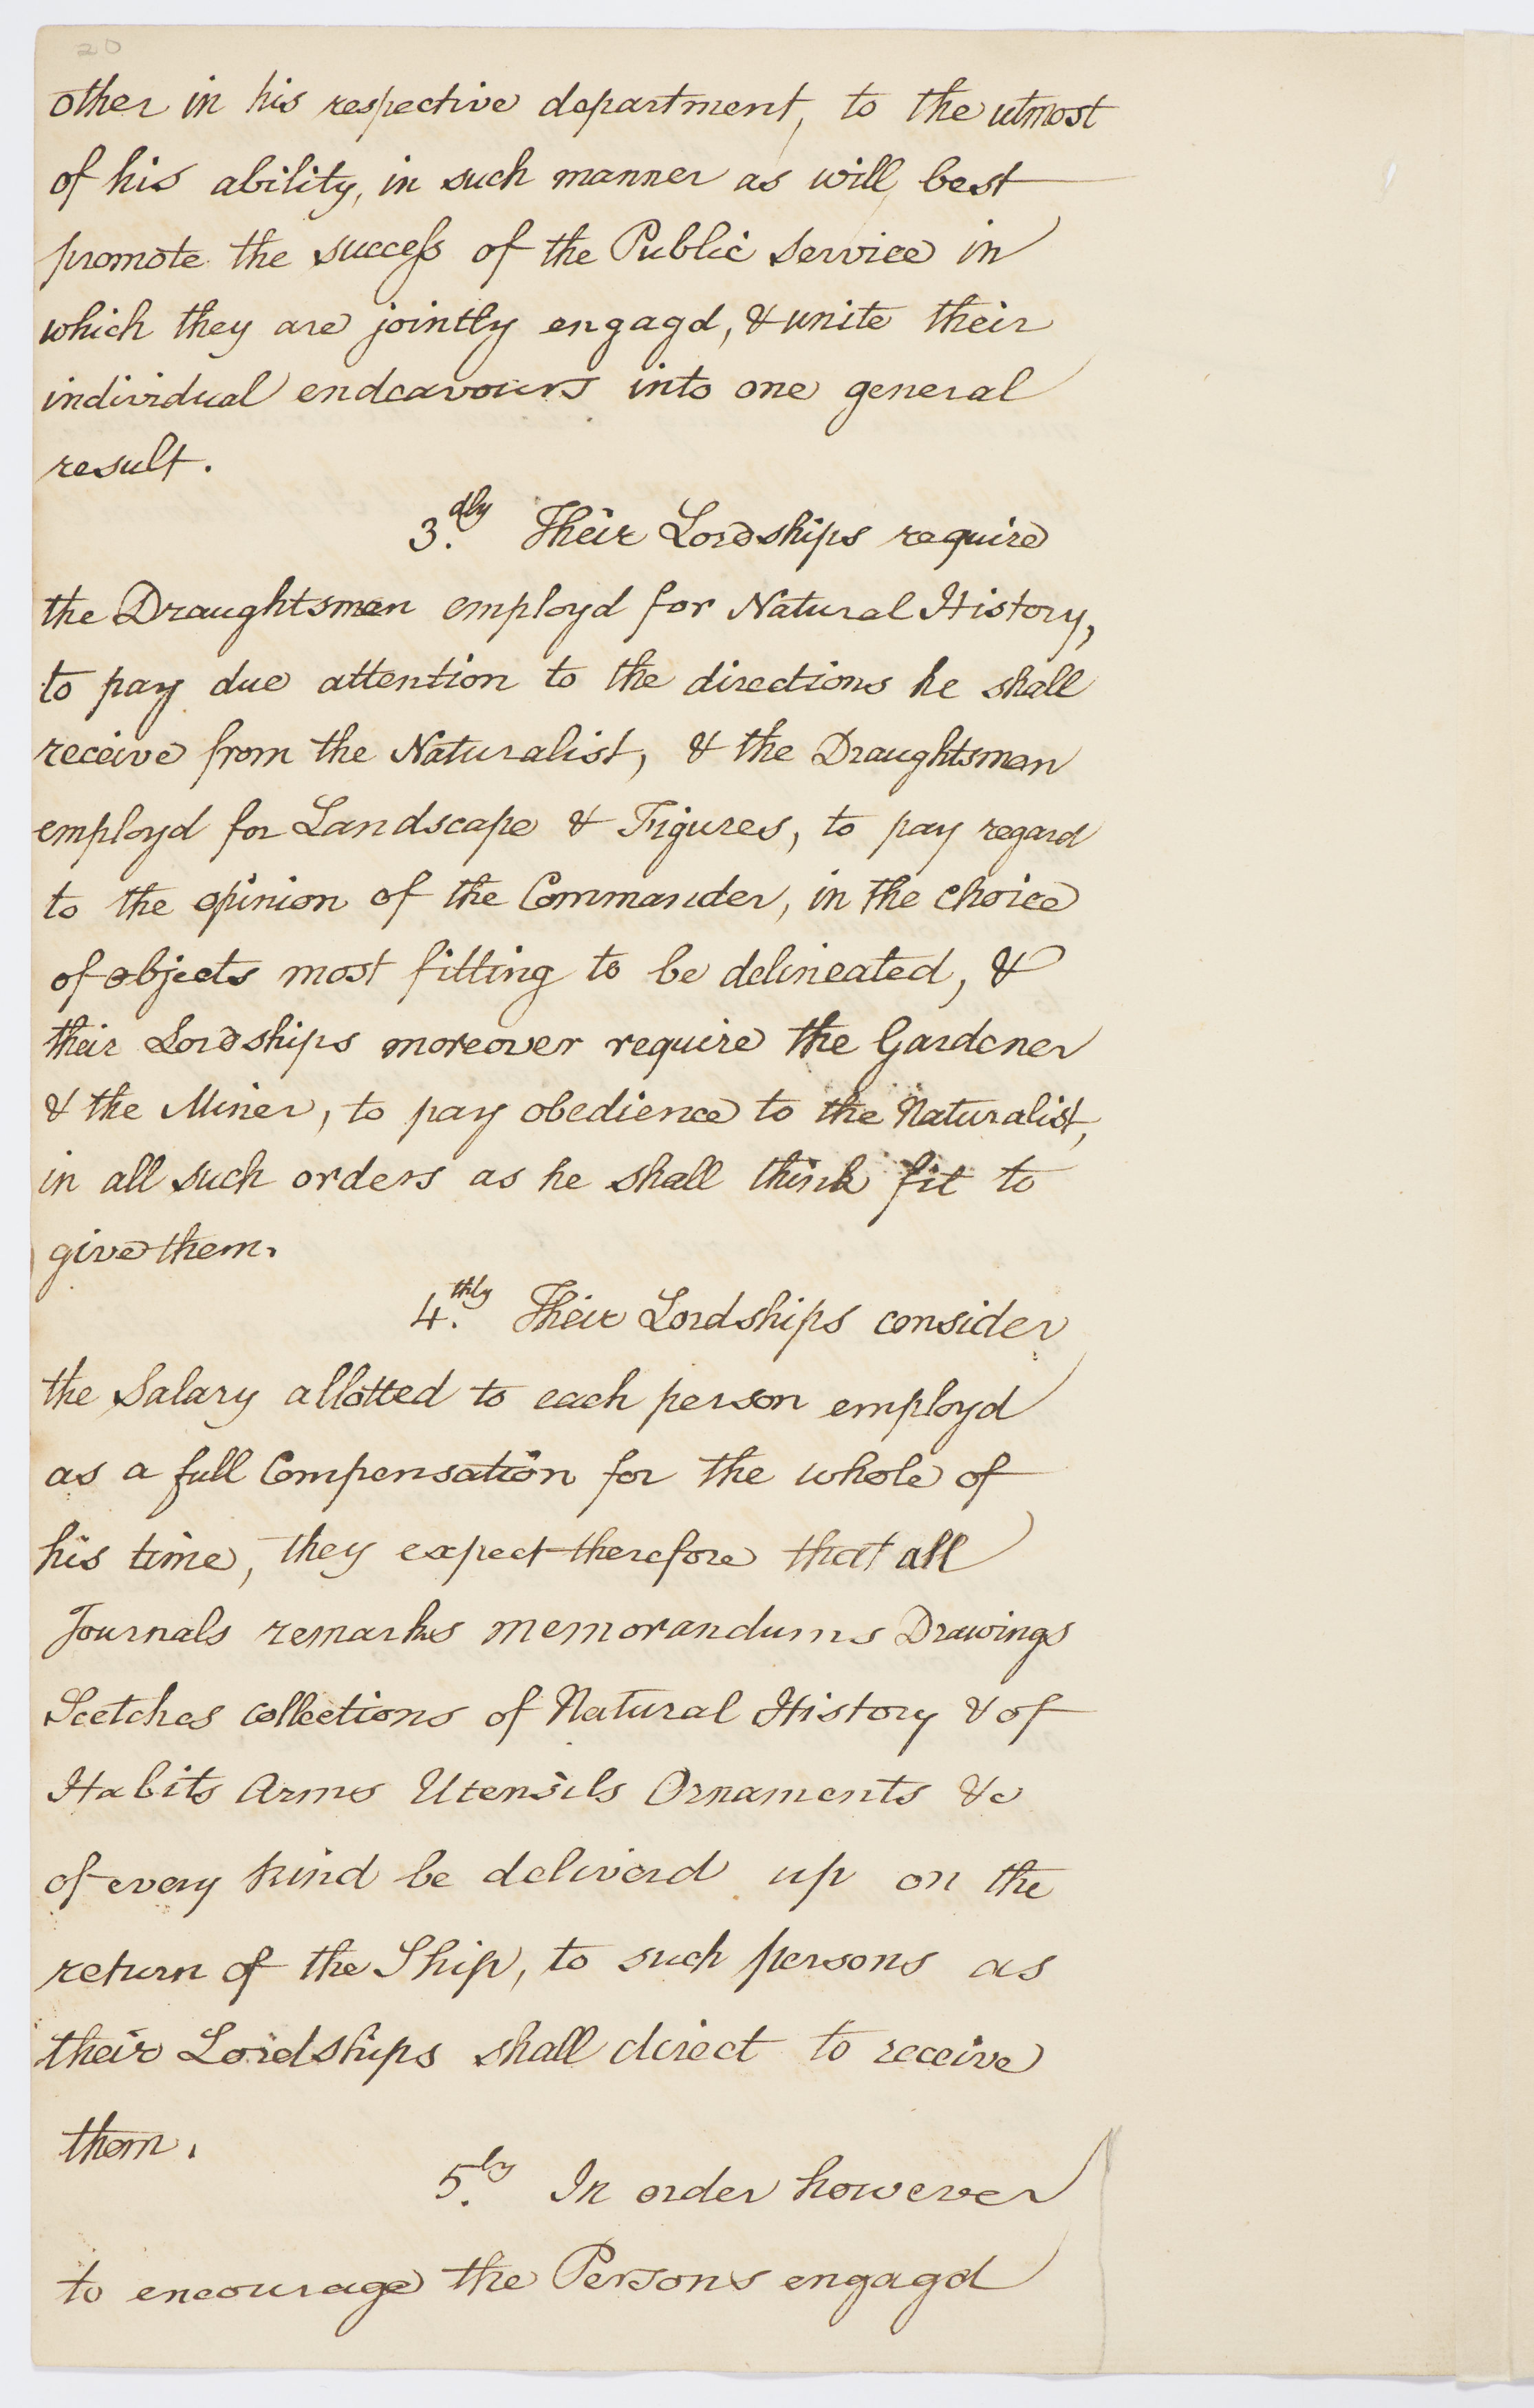 20
other in his respective department, to the utmost
of his ability, in such manner as will best
promote the success of the Public Service in
which they are jointly engagd, & unite their
individual endeavours into one general
result.
3.dly Their Lordships require
the Draughtsman employd for Natural History,
to pay due attention to the directions he shall
receive from the Naturalist, & the Draughtsman
employd for Landscape & Figures, to pay regard
to the opinion of the Commander, in the choice
of objects most fitting to be delineated, &
their Lordships moreover require the Gardener
& the Miner, to pay obedience to the Naturalist,
in all such orders as he shall think fit to
give them.
4.thly Their Lordships consider
the Salary allotted to each person employd
as a full Compensation for the whole of
his time, they expect therefore that all
Journals remarks memorandums Drawings
Scetches collections of Natural History & of
Habits Arms Utensils Ornaments &c
of every kind be deliverd up on the
return of the Ship, to such persons as
their Lordships shall direct to receive
them.
5.ly In order however
to encourage the Persons engagd